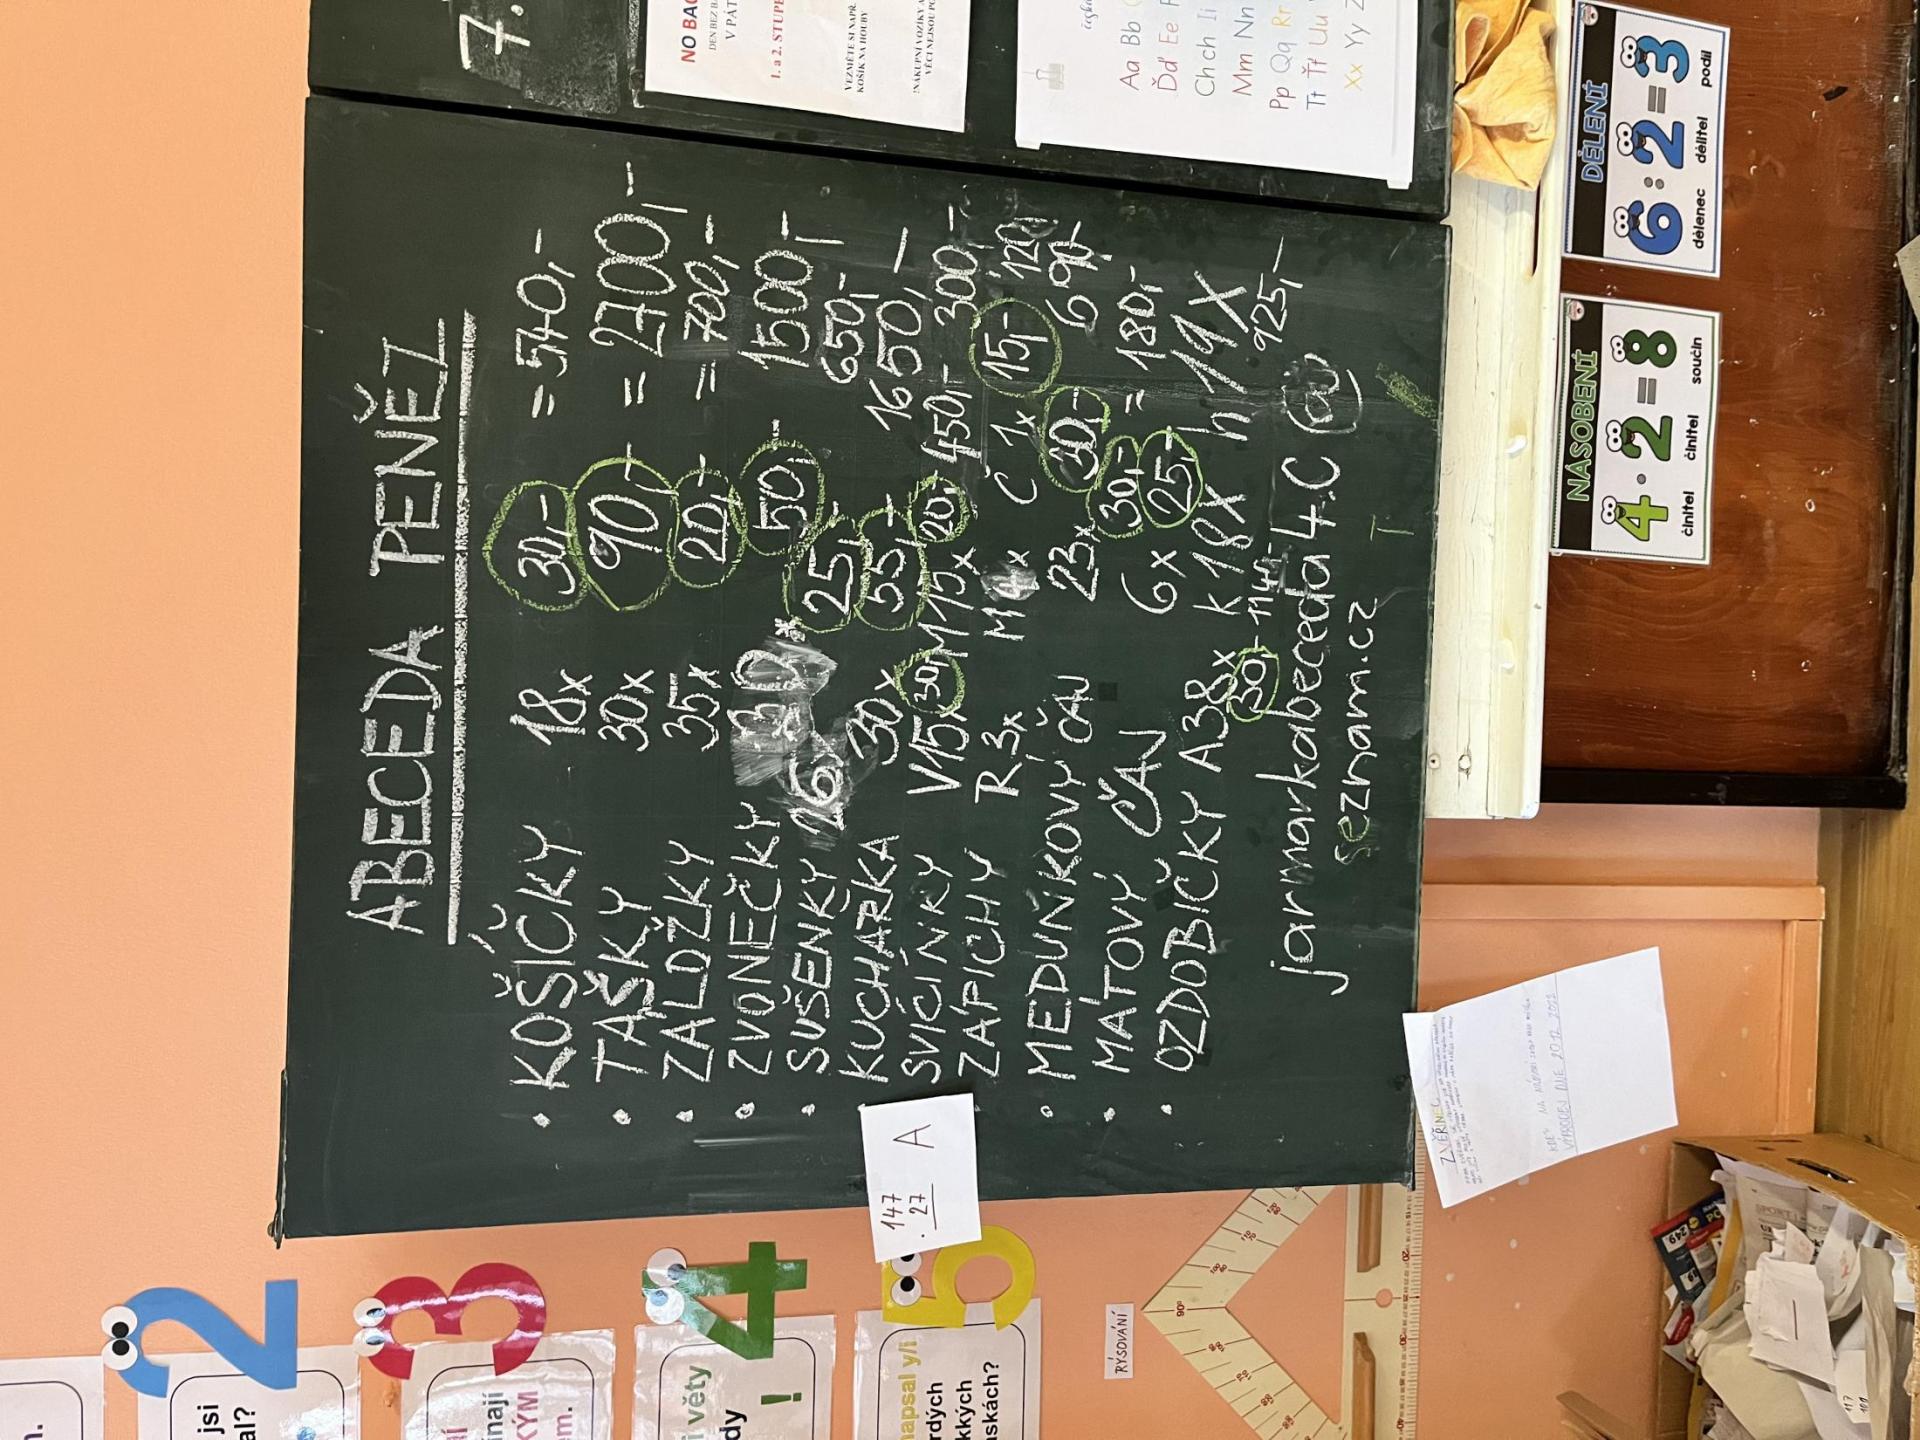 7.
NO BAG
DEN BEZ
V PÁT
1. a 2. STUPE
VEZMĚTE SI NAPŘ.
KOŠÍK NA HOUBY
!NÁKUPNÍ VOZÍKY A
VĚCI NEJSOU
česká
Aa Bb
Ďď Ee
Ch ch Ii
Mm Nn
Pp Qq Rr
Tt Ťť Uu
Xx Yy
ABECEDA PENĚZ
• KOŠÍČKY 18x 30,- = 540,-
• TAŠKY 30x 90,- = 2700,-
• ZALDŽKY 35x 20,- = 700,-
• ZVONEČKY 50,- 1500,-
• SUŠENKY 26x 25,- 650,-
KUCHAŘKA 30x 55,- 1650,-
SVÍCÍNKY V15x 30,- M15x 20,- 450,- 300,-
ZÁPICHY R 3x M 4x Č 1x 15,- 120,-
• MEDUŇKOVÝ ČAJ 23x 30,- 690,-
• MÁTOVÝ ČAJ 6x 30,- = 180,-
• OZDOBIČKY A38x k 18X 25,- h 19X
30,- 114,- 925,-
jarmarkabeceda4.C @
seznam.cz T
147
. 27
A
DĚLENÍ
6 : 2 = 3
dělenec dělitel podíl
NÁSOBENÍ
4 · 2 = 8
činitel činitel součin
2
3
4
5
jsi
al?
ínají
KÝM
em.
i věty
dy
!
napsal y/i
rdých
kkých
askách?
RÝSOVÁNÍ
ZVĚŘINEC
VÝPRODEJ DNE 20.12. 2023
249